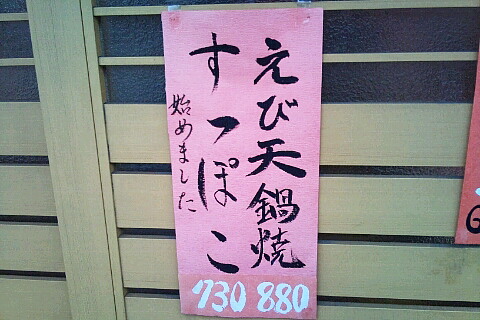 えび天鍋焼
すっぽこ
始めました
880
730
G